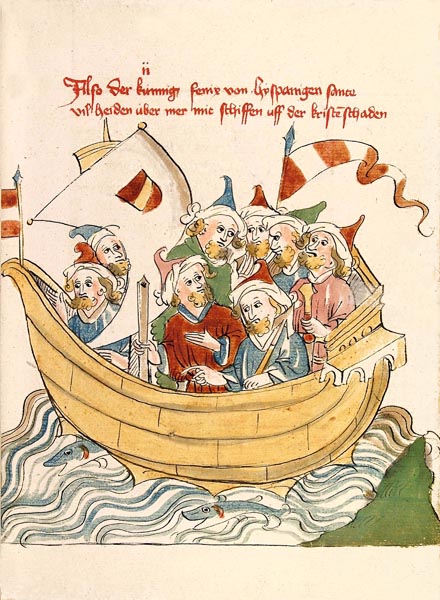 ij
Also der kúnnig fenix von hyspanigen sante
vil heiden úber mer mit schiffen uff der kristē schaden